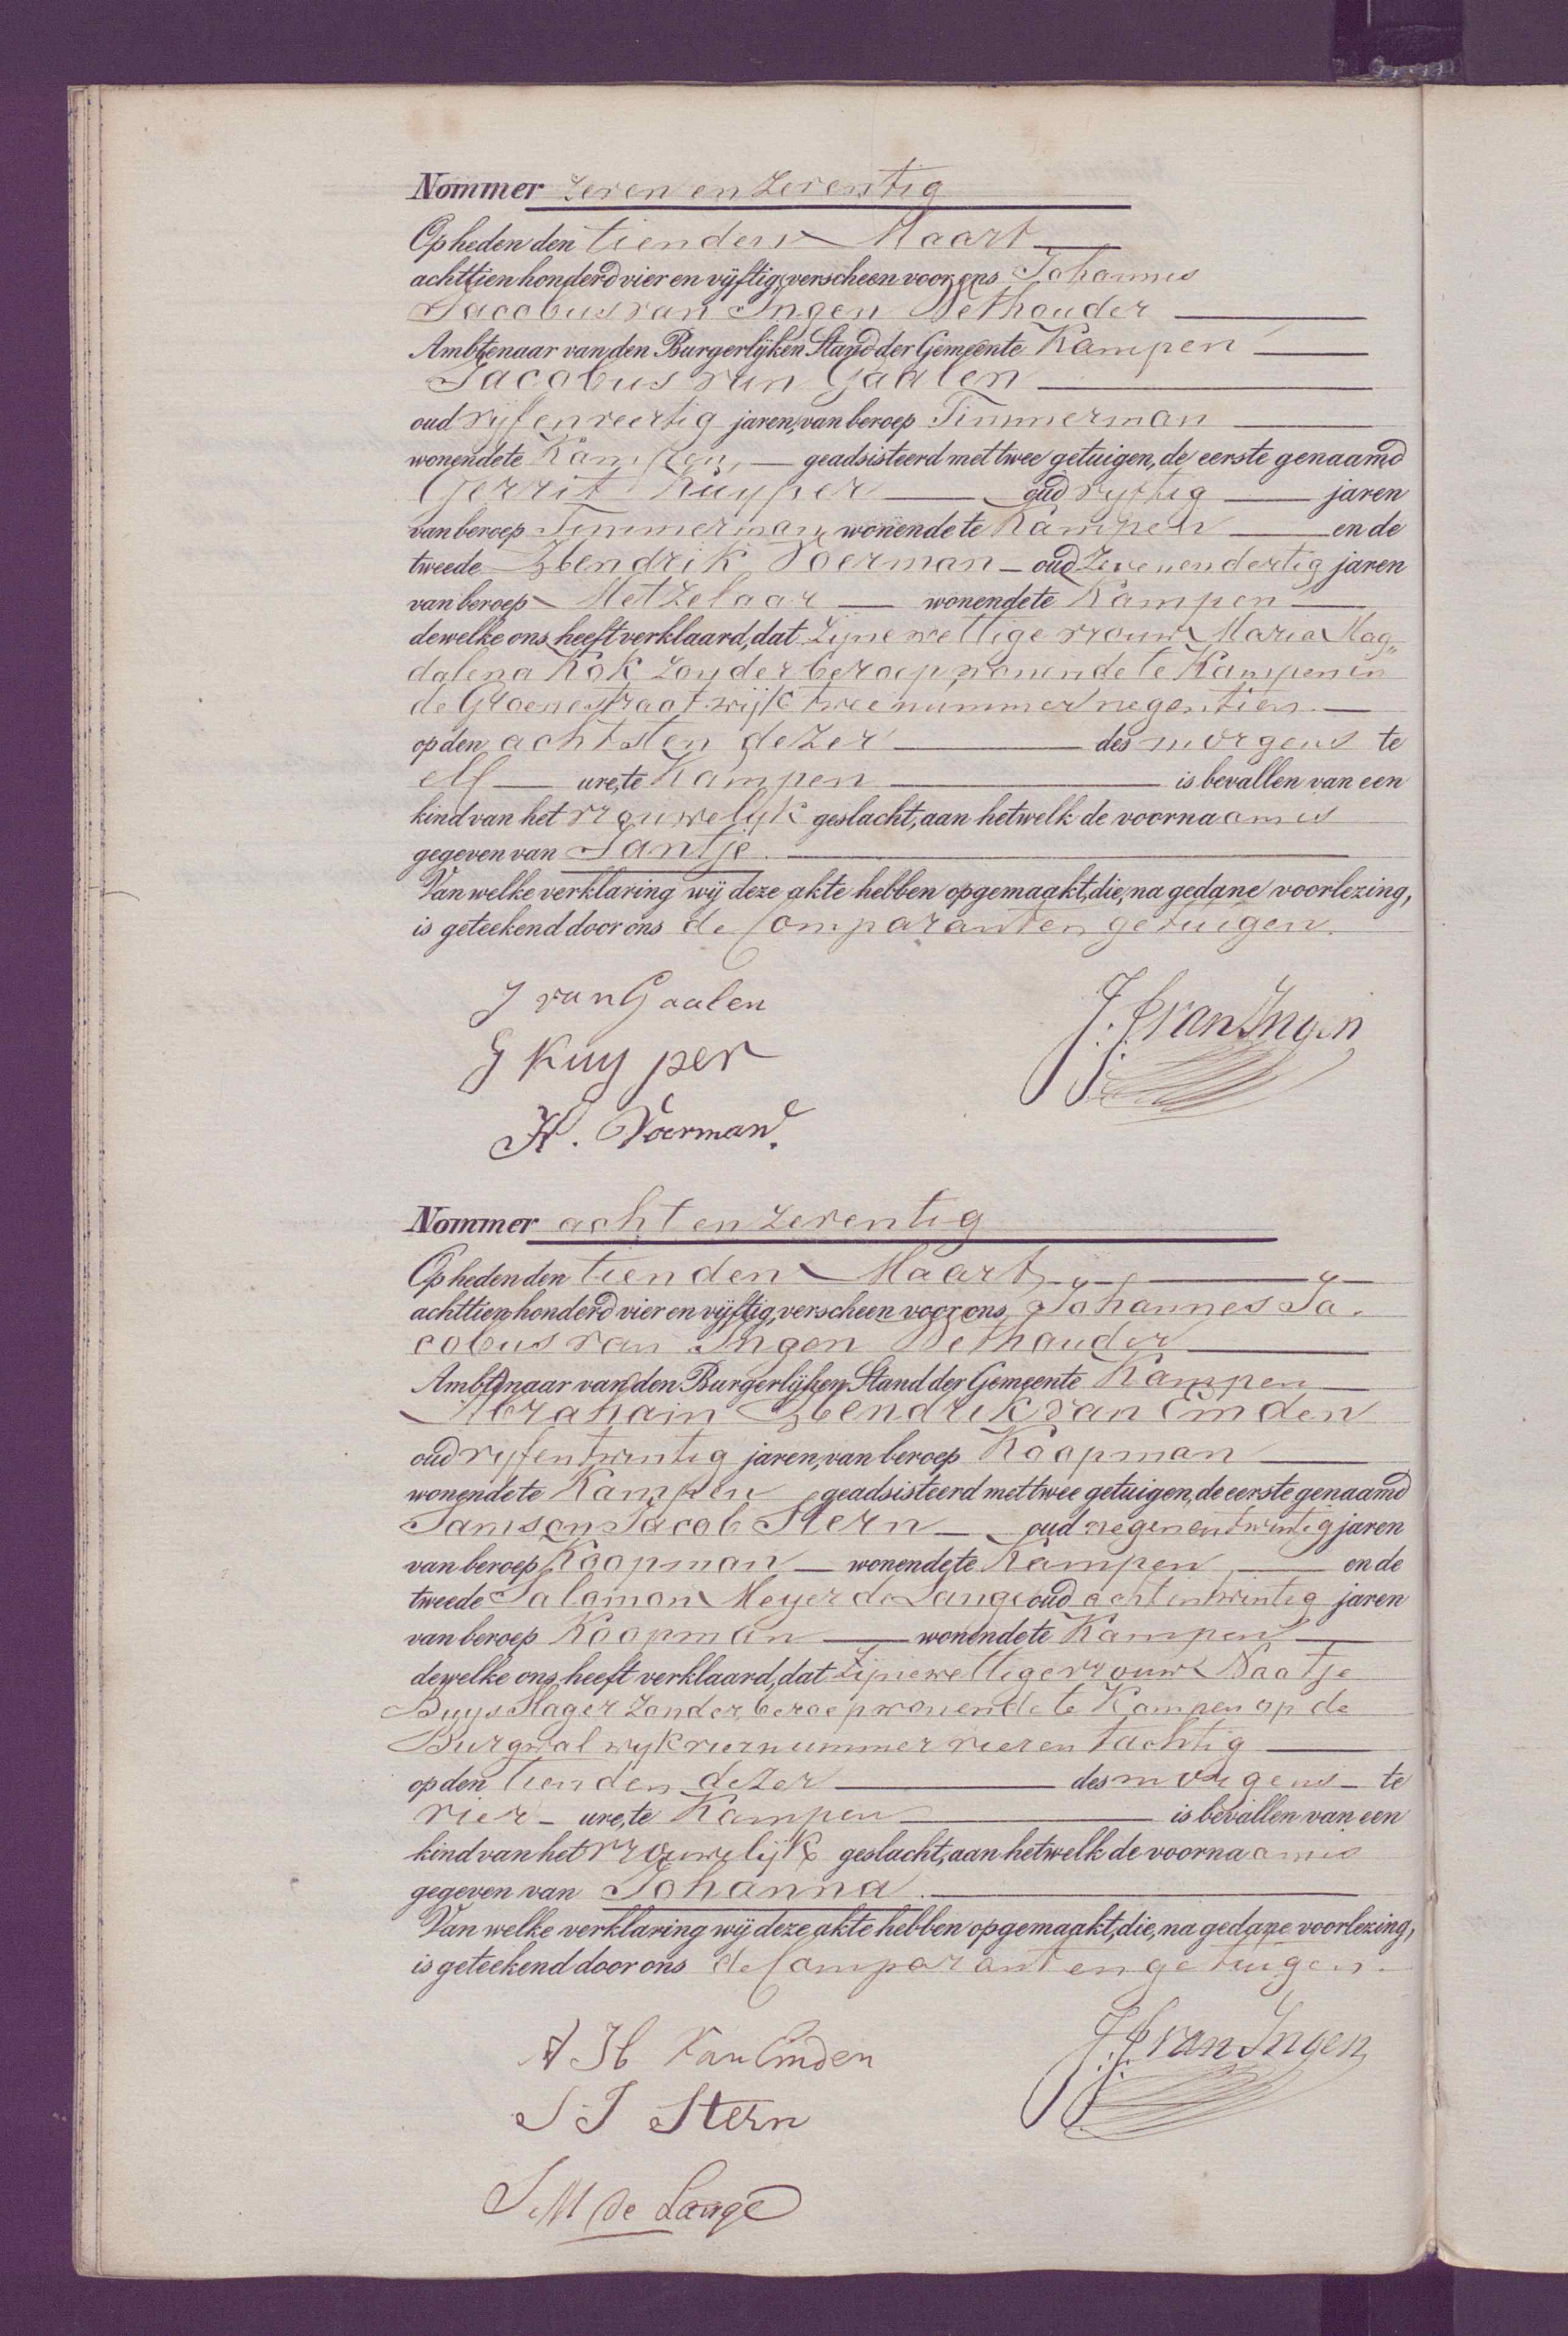 Nommer zeven en zeventig
Op heden den tienden Maart
achttien honderd vier en vijftig, verscheen voor ons Johannes
Jacobus van Ingen Wethouder
Ambtenaar van den Burgerlijken Stand der Gemeente Kampen
Jacobus van Gaalen
oud vijf en veertig jaren, van beroep Timmerman
wonende te Kampen, geadsisteerd met twee getuigen, de eerste genaamd
Gerrit Kuyper oud vyftig jaren
van beroep Timmerman, wonende te Kampen en de
tweede Hendrik Voerman oud Zeven en dertig jaren
van beroep Metzelaar wonende te Kampen
dewelke ons heeft verklaard, dat zijne wettige vrouw Maria Mag„
dalena Kok zonder beroep, wonende te Kampen in
de Groenestraat wijk twee nummer negentien
op den achtsten dezer des morgens te
elf ure, te Kampen is bevallen van een
kind van het vrouwelijk geslacht, aan hetwelk de voornaam is
gegeven van Jantje.
Van welke verklaring wij deze akte hebben opgemaakt, die, na gedane voorlezing,
is geteekend door ons de Comparant en getuigen.
J van Gaalen
J. J. van Ingen
G Kuyper
H. Voerman.
Nommer acht en zeventig
Op heden den tienden Maart
achttien honderd vier en vijftig, verscheen voor ons Johannes Ja-
cobus van Ingen Wethouder
Ambtenaar van den Burgerlijken Stand der Gemeente Kampen
Abraham Hendrik van Emden
oud vijf en twintig jaren, van beroep Koopman
wonende te Kampen geadsisteerd met twee getuigen, de eerste genaamd
Samson Jacob Stern oud negen en twintig jaren
van beroep Koopman wonende te Kampen en de
tweede Salomon Meyer de Lange oud acht en twintig jaren
van beroep Koopman wonende te Kampen
dewelke ons heeft verklaard, dat zijne wettige vrouw Naatje
Buys Slager zonder beroep wonende te Kampen op de
Burgwal wyk vier nummer vier en tachtig
op den tienden dezer des morgens te
vier ure, te Kampen is bevallen van een
kind van het vrouwelijk geslacht, aan hetwelk de voornaam is
gegeven van Johanna.
Van welke verklaring wij deze akte hebben opgemaakt, die, na gedane voorlezing,
is geteekend door ons de Comparant en getuigen.
A H Van Emden
J. J. van Ingen
S J Stern
S. M de Lange